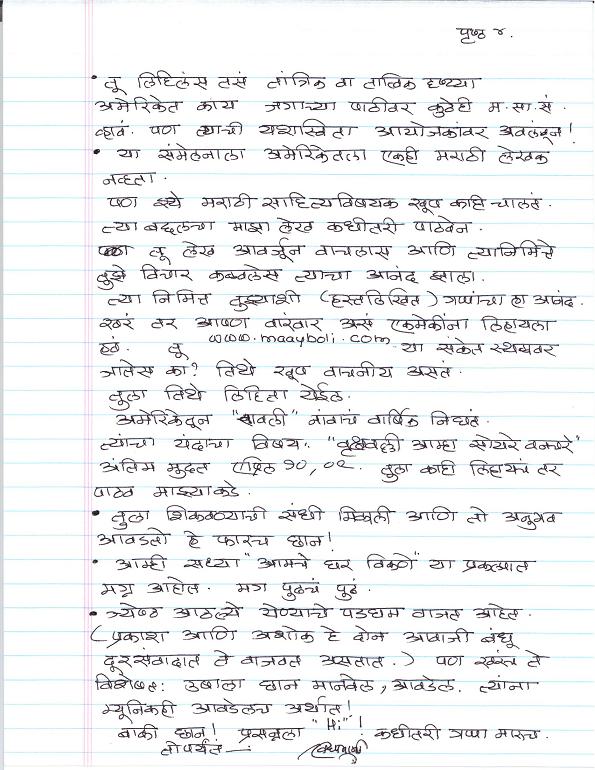 पृष्ठ ४.
• तू लिहिलंस तसं तांत्रिक वा तात्विक दृष्ट्या
अमेरिकेत काय जगाच्या पाठीवर कुठेही म.सा.सं.
व्हावं. पण त्याची यशस्विता आयोजकांवर अवलंबून!
• या संमेलनाला अमेरिकेतला एकही मराठी लेखक
नव्हता.
पण इथे मराठी साहित्यविषयक खूप काही चालतं.
त्या बद्दलचा माझा लेख कधीतरी पाठवेन.
तू लेख आवर्जून वाचलास आणि त्यानिमित्ते
तुझे विचार कळवलेस त्याचा आनंद झाला.
त्या निमित्त तुझ्याशी (हस्तलिखित) गप्पांचा हा आनंद.
खरं तर आपण वारंवार असं एकमेकींना लिहायला
हवं. तू www.maayboli.com या संकेत स्थळावर
जातेस का? तिथे खूप वाचनीय असतं.
तुला तिथे लिहिता येईल.
अमेरिकेतून नांवाचं वार्षिक निघतं.
त्यांचा यंदाचा विषय: "वृक्षवल्ली आम्हा सोयरे वनचरे"
अंतिम मुदत एप्रिल १०, ०८. तुला काही लिहायचं तर
पाठव माझ्याकडे.
• तुला शिकवण्याची संधी मिळाली आणि तो अनुभव
आवडतो हे फारच छान!
• आम्ही सध्या "आमचे घर विकणे" या प्रकल्पात
मग्न आहोत. मग पुढचं पुढं.
• ज्येष्ठ आठल्ये येण्याचे पडघम वाजत आहेत.
(प्रकाश आणि अशोक हे दोन बंधू
दूरसंवादात ते वाजवत असतात.) पण खरंच ते
विशेषत: उषाला छान मानवेल, आवडेल. त्यांना
म्यूनिकही आवडेलच अर्थात!
बाकी छान! प्रसन्नला "Hi"! कधीतरी गप्पा मारूच.
तोपर्यंत —